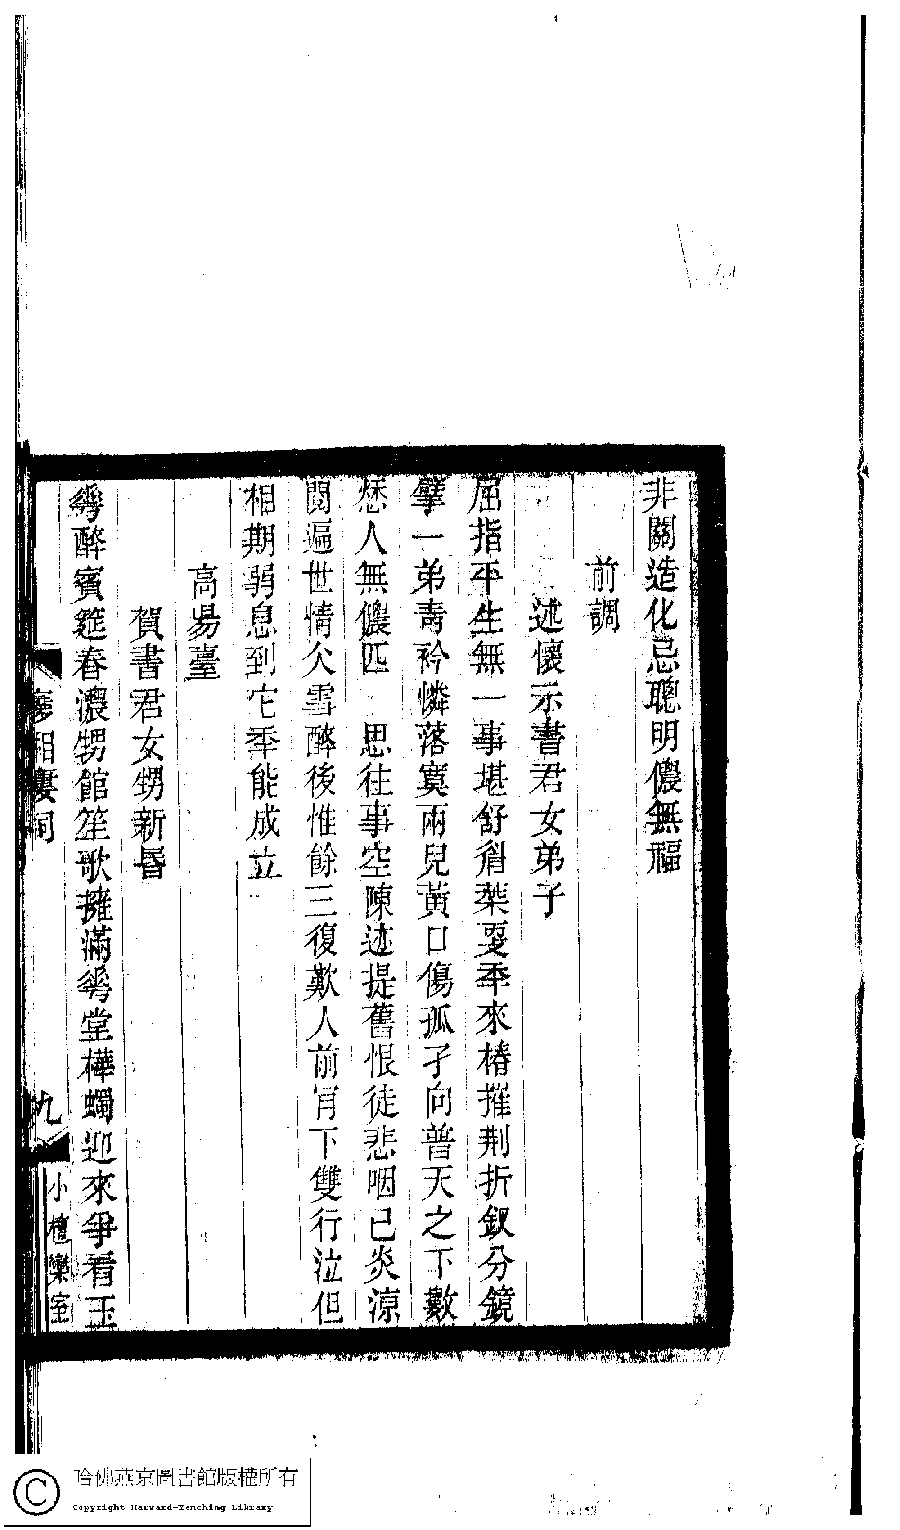 非關造化忌聰明儂無福
前調
述懷示書君女弟子
屈指平生無一事堪舒眉葉耎年來椿摧荆折釵分鏡
擘一弟青衿憐落寞兩兒黃口傷孤孑向普天之下數
愁人無儂匹　思往事空陳迹提舊恨徒悲咽已炎涼
閱遍世情欠雪醉後惟餘三復歎人前肯下雙行泣但
相期弱息到它年能成立
高昜臺
賀書君女甥新昏
蕚醉賓筵春濃甥館笙歌擁滿蕚堂樺蠋迎來爭看玉
湘樓詞
九
小檀欒室
哈佛燕京圖書館版權所有
Copyright Harvard-Yenching Library